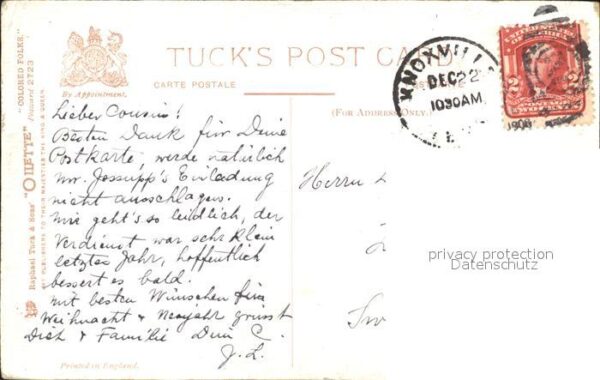 TUCK'S POST CARD
CARTE POSTALE
By Appointment.
(FOR ADDRESS ONLY.)
Raphael Tuck & Sons' "OILETTE" "COLORED FOLKS."
Postcard 2723
ART PUBLISHERS TO THEIR MAJESTIES THE KING & QUEEN.
KNOXVILLE
DEC 22
1030AM
Lieber Cousin!
Besten Dank für Deine
Postkarte, werde natürlich
Mr. Jessupp's Einladung
nicht ausschlagen.
Mir geht's so leidlich, der
Verdienst war sehr klein
letztes Jahr, hoffentlich
bessert es bald.
Mit besten Wünschen für
Weihnacht & Neujahr grüsst
Dich & Familie Dein C.
J. L.
Herrn
privacy protection
Datenschutz
Printed in England.